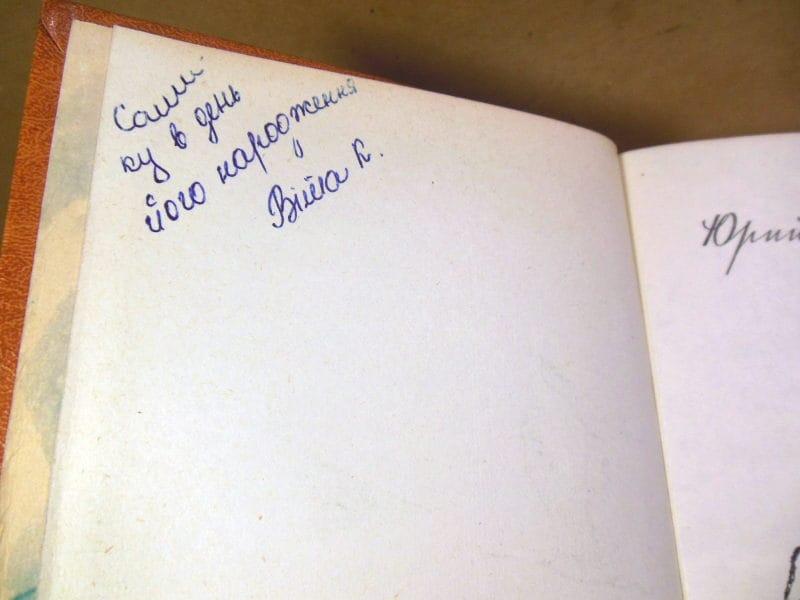 Сашi
ку в день
його народження
Вiта К.
Юрий